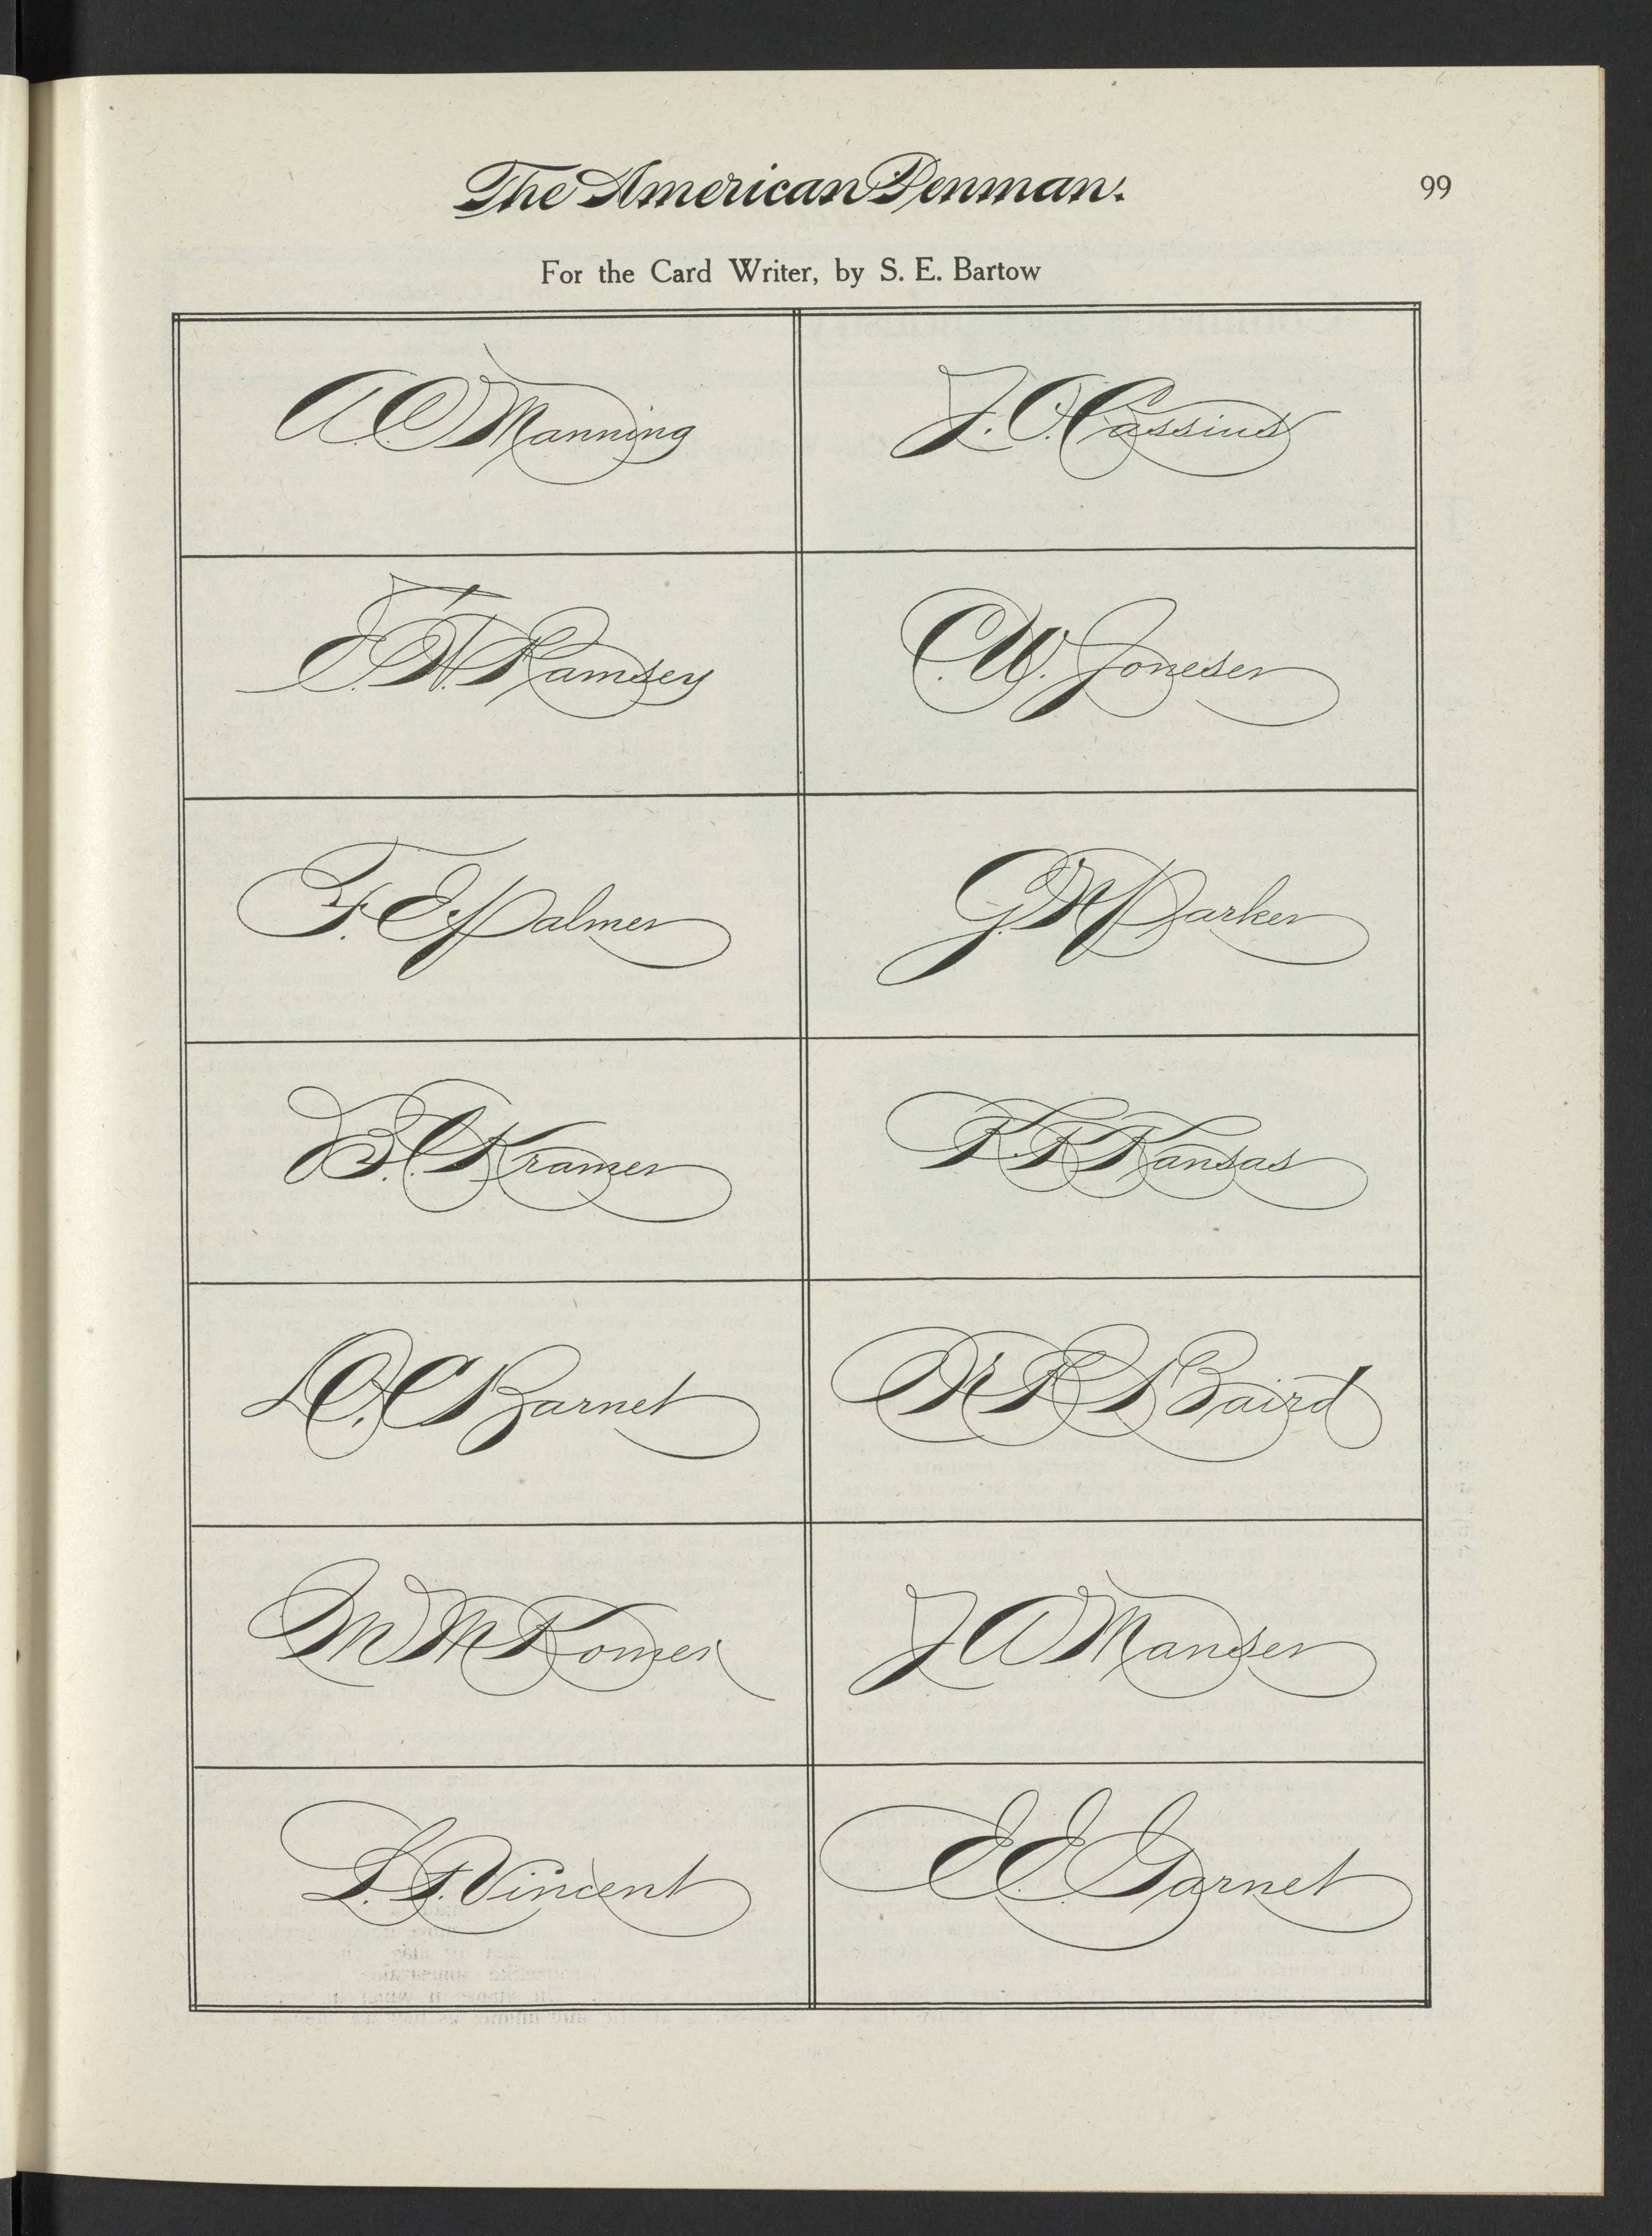 The American Penman.
99
For the Card Writer, by S. E. Bartow
A. C. Manning
J. O. Cassius
E. W. Ramsey
C. W. Jonesen
F. E. Palmer
G. W. Parker
B. C. Kramer
R. R. Kansas
D. C. Barnet
W. R. Baird
M. M. Komer
J. A. Mansen
L. S. Vincent
E. E. Garnet